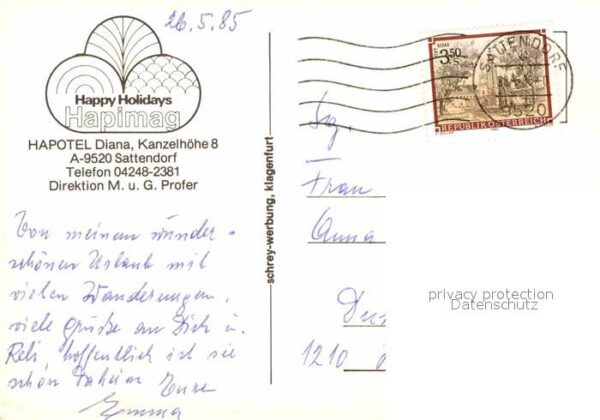 26.5.85
Happy Holidays
Hapimag
HAPOTEL Diana, Kanzelhöhe 8
A-9520 Sattendorf
Telefon 04248-2381
Direktion M. u. G. Profer
Von meinem wunder-
schönen Urlaub mit
vielen Wanderungen,
viele Grüße an Dich u.
hoffentlich ist sie
schön daheim Eure
Emma
schrey-werbung, klagenfurt
3.50
REPUBLIK ÖSTERREICH
SATTENDORF
Frau
Anna
1210
privacy protection
Datenschutz